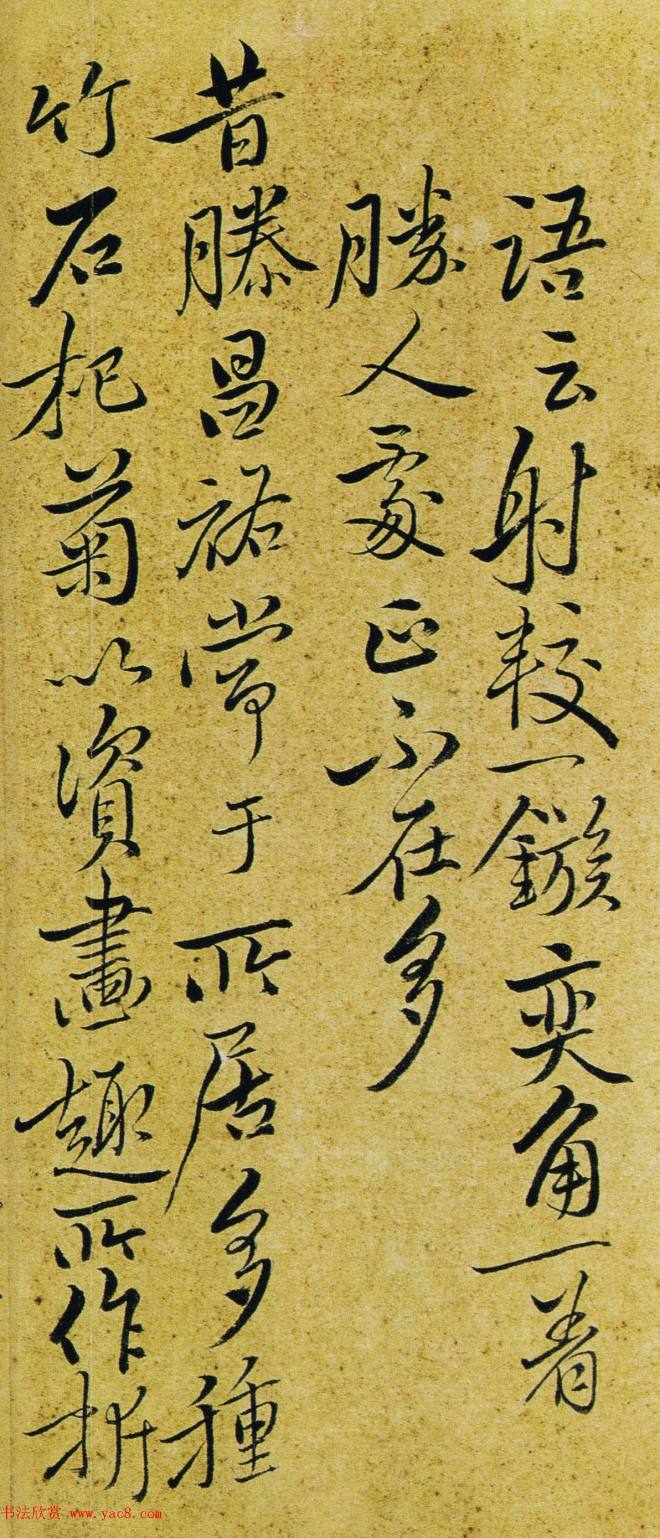 語云射較一鏃奕角一着
勝人處正不在多
昔滕昌祐常于所居多種
竹石杞菊以資畫趣所作折
书法欣赏 www.yac8.com